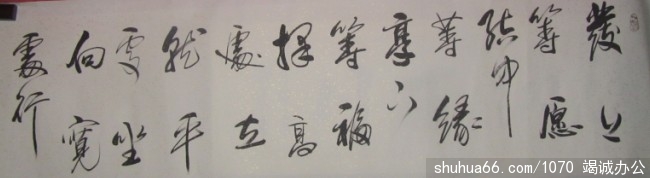 發上
等愿
結中
等緣
享下
等福
擇高
處立
就平
處坐
向寬
處行
shuhua66.com/1070 竭诚办公